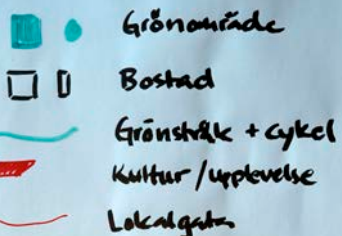 Grönområde
Bostad
Grönstråk + cykel
Kultur/upplevelse
Lokalgata